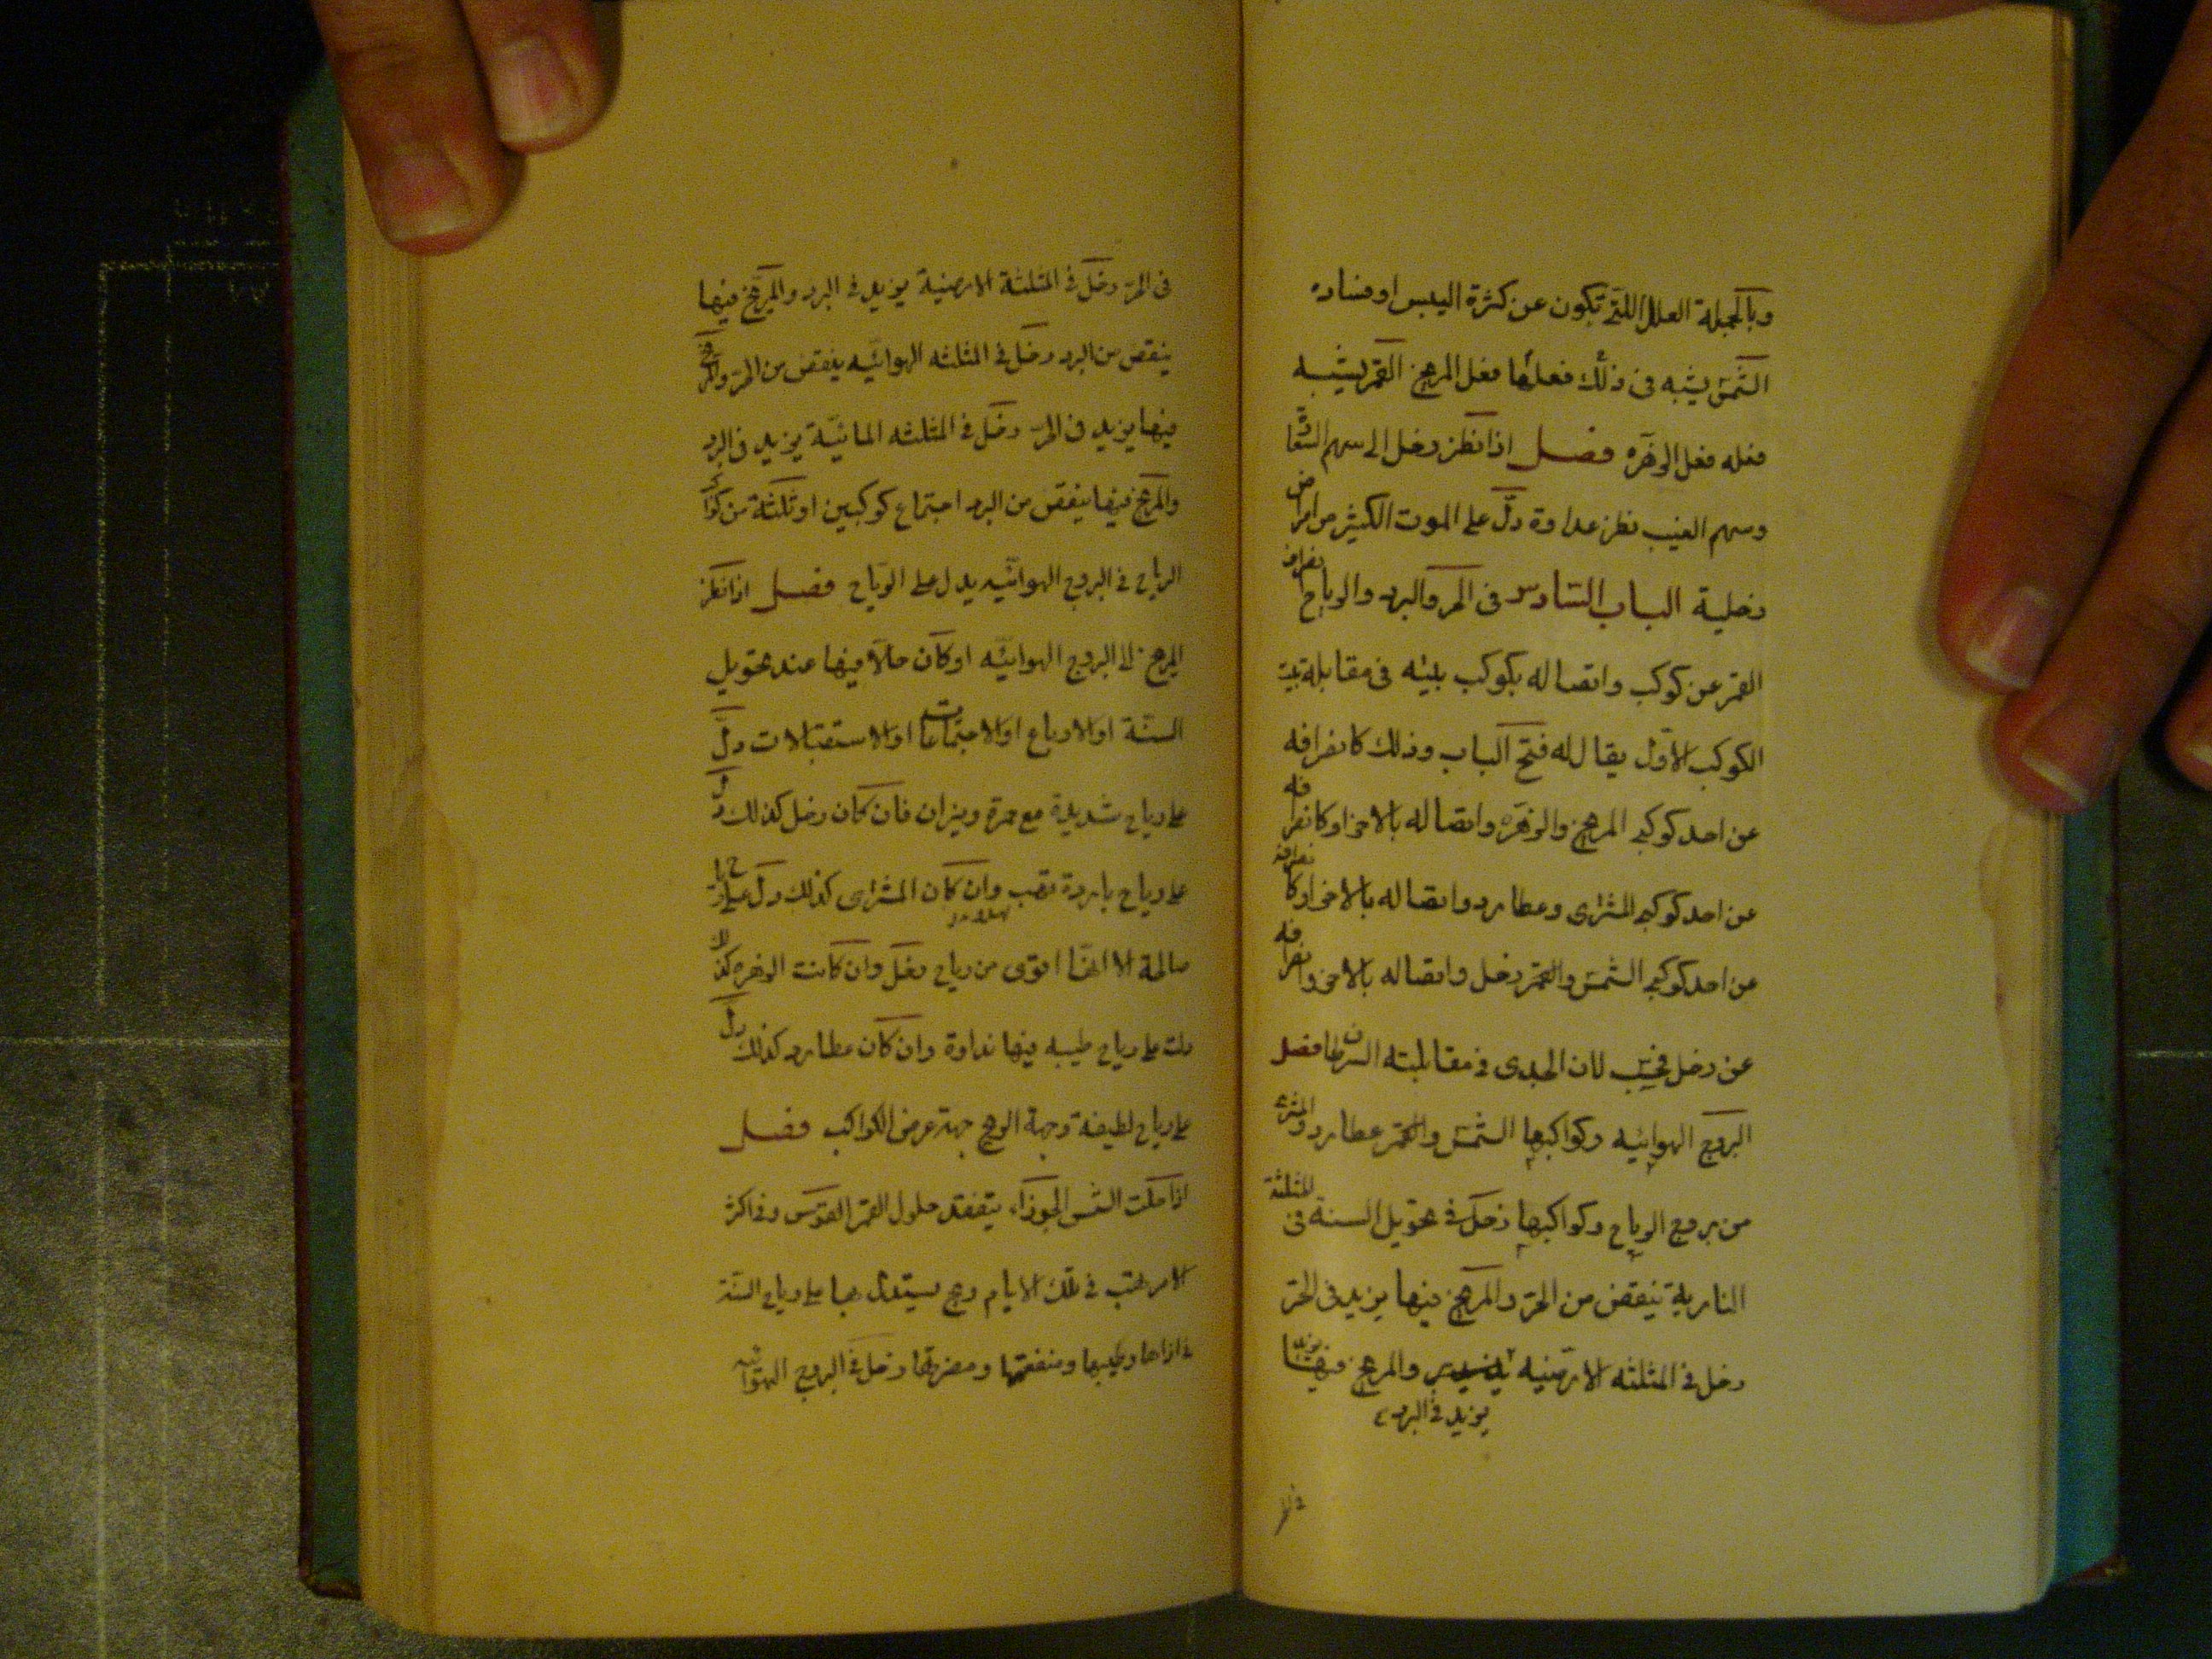 وبالجملة العلل اللتى تكون عن كثرة اليبس او فساده
الشمس يشبه فى ذلك فعلها فعل المريخ القمر يشبه
فعله فعل الزهره فصل اذا نظر زحل الى سهم السعادة
وسهم الغيب نظر عداوة دلّ على الموت الكثير من امراض
زحلية الباب السادس فى الحر والبرد والرياح انصراف
القمر عن كوكب واتصاله بكوكب بيته فى مقابلة بيت
الكوكب الاوّل يقال له فتح الباب وذلك كانصرافه
عن احد كوكبى المريخ والزهره واتصاله بالاخر او كانصرافه
عن احد كوكبى المشترى وعطارد واتصاله بالاخر او كانصرافه
عن احد كوكبى الشمس والقمر وزحل واتصاله بالاخر وانصرافه
عن زحل لان الجدى فى مقابلته السرطان فصل
البروج الهوائيه وكواكبها الشمس والقمر عطارد والمشترى
من بروج الرياح وكواكبها زحل فى تحويل السنة فى المثلثة
النارية ينقص من الحرّ والمريخ فيها يزيد فى الحرّ
زحل فى المثلثه الارضيه والمريخ فيها يزيد
يزيد فى البرد
فى الحرّ زحل فى المثلثة الارضية يزيد فى البرد والمريخ فيها
ينقص من البرد زحل فى المثلثه الهوائيه ينقص من الحرّ والمريخ
فيها يزيد فى الحرّ زحل فى المثلثه المائيّة يزيد فى البرد
والمريخ فيها ينقص من البرد اجتماع كوكبين او ثلثة من كواكب
الرياح فى البروج الهوائيه يدل على الرياح فصل اذا نظر
المريخ الى البروج الهوائيه او كان حالا فيها عند تحويل
السنة او الارباع او الاجتماعات او الاستقبالات دلّ
على رياح شديدة مع حمرة ونيران فان كان زحل كذلك دلّ
على رياح باردة وان كان المشترى كذلك دل على رياح
صالحة الا انها اقوى من رياح زحل وان كانت الزهره كذلك
دلت على رياح طيبه فيها نداوة وان كان عطارد كذلك دلّ
على رياح لطيفة وجهة الريح جهة عرض الكواكب فصل
اذا حلت الشمس الجوزاء يتفقد حلول القمر القوس وفى اكثر
الامر تهب فى تلك الايام ريح يستدل بها على رياح السنة
فى اذاها وطيبها ومنفعتها ومضرتها زحل فى البروج الهوائيه